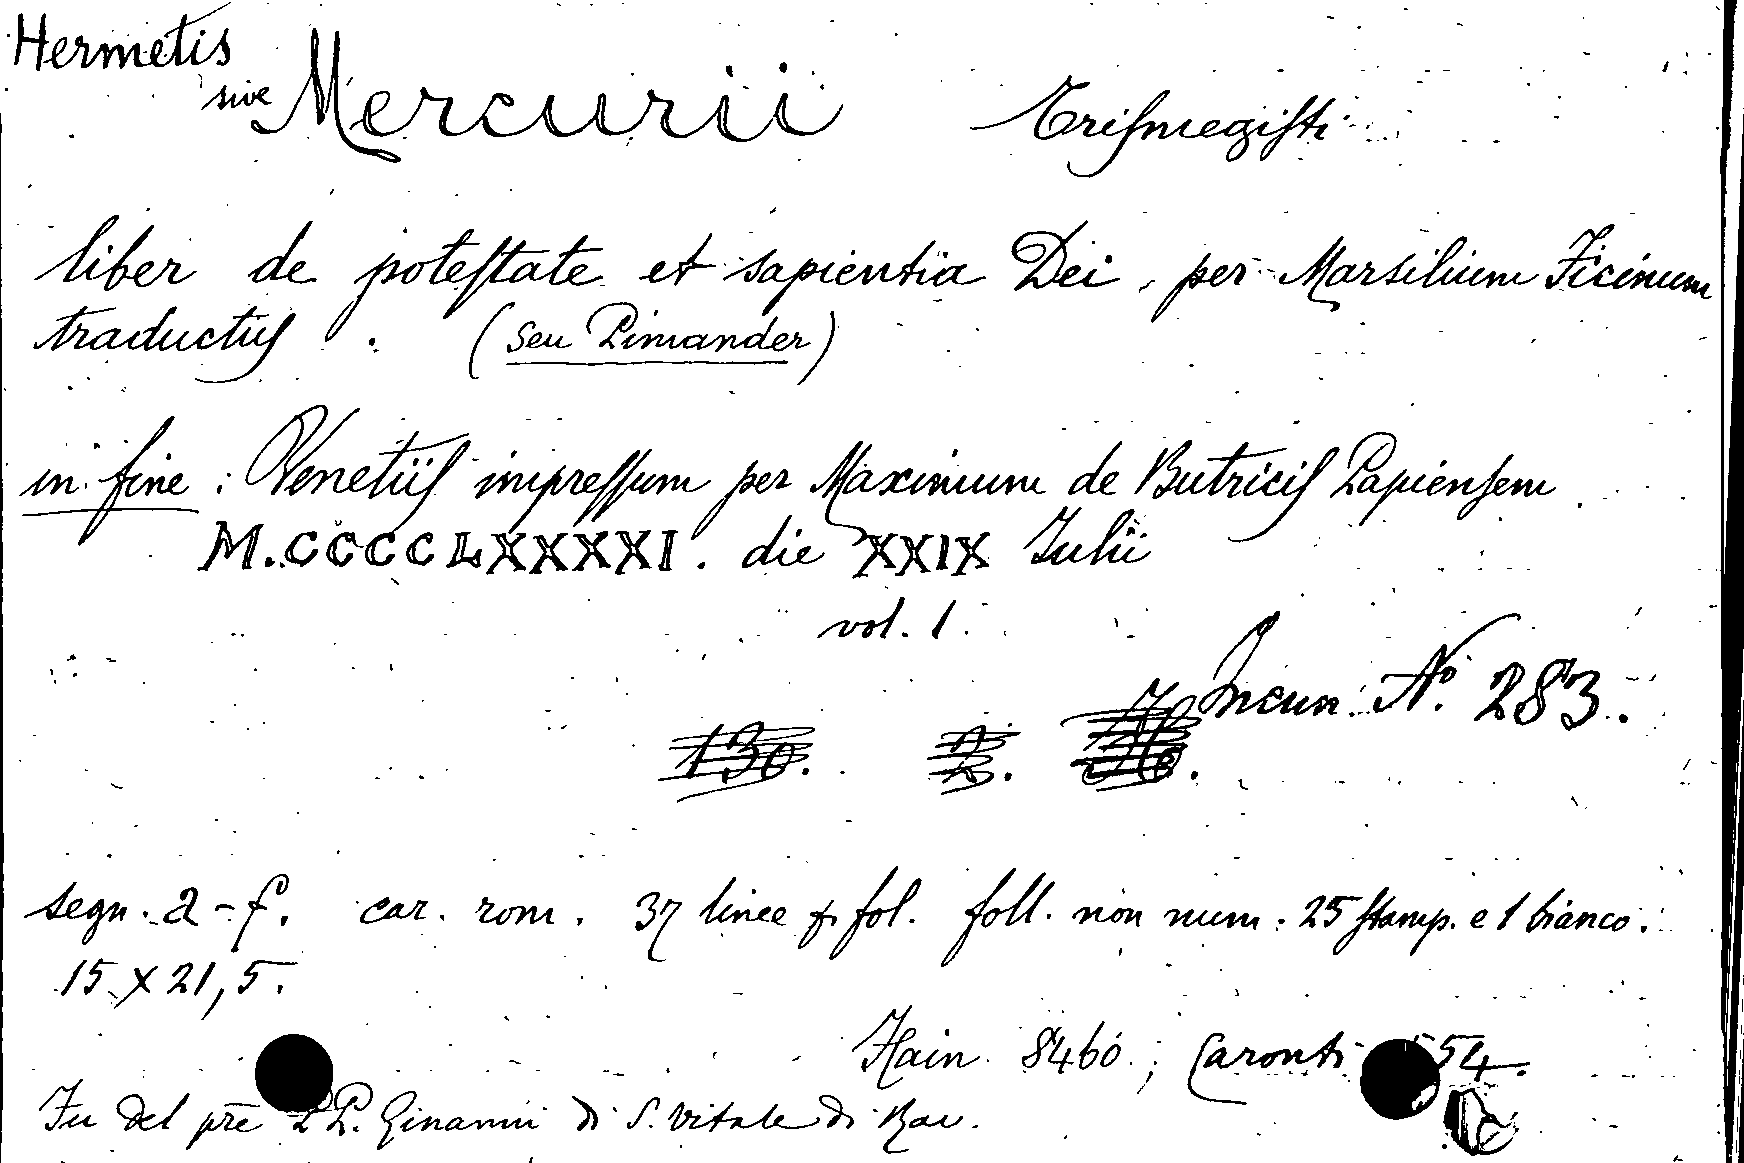 Hermetis
sive Mercurii Triſmegiſti
liber de poteſtate et sapientia Dei, per Marsilium Ficinum
traductuſ. (seu Pimander)
in fine: Venetiiſ impreſſum per Maximum de Butriciſ Papienſem
M.CCCCLXXXXI. die XXIX Iulii
vol. 1.
Incun. Nº 283.
130. 2.
segn. a-f. car. rom. 37 linee p. fol. foll. non num. 25 ſtamp. e 1 bianco.
15 x 21,5.
Hain 8460; Caronti 554.
Fu del prē P.P. Ginanni di S. Vitale di Rav.